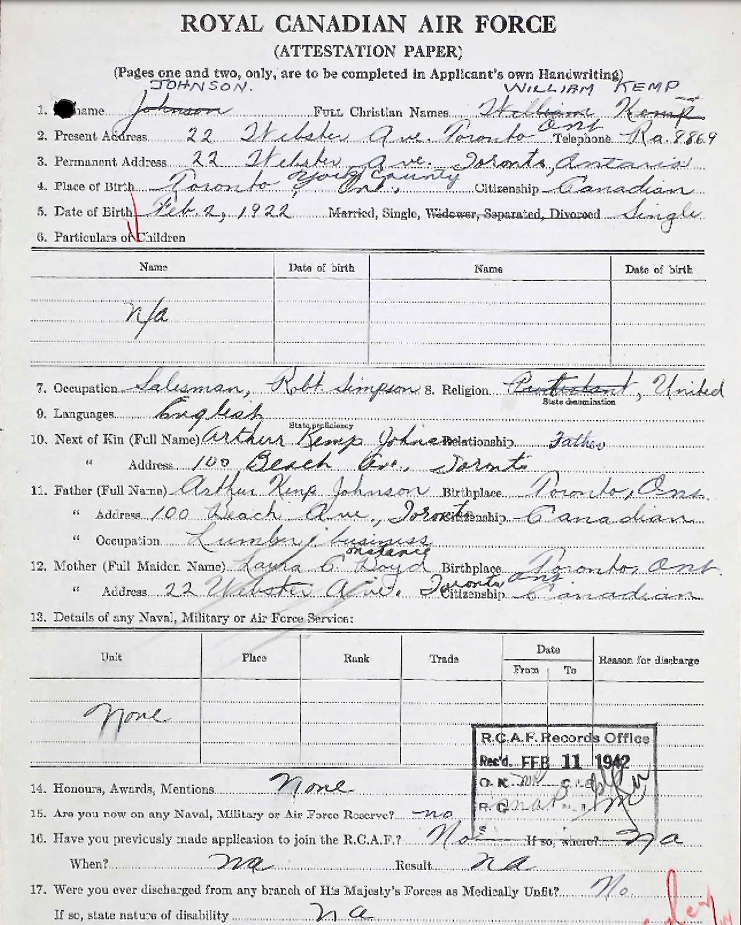 ROYAL CANADIAN AIR FORCE
(ATTESTATION PAPER)
(Pages one and two, only, are to be completed in Applicant's own Handwriting)
JOHNSON. WILLIAM KEMP
1. name Johnson FULL Christian Names William Kemp
2. Present Address 22 Webster Ave. Toronto Ont Telephone Ra. 8869
3. Permanent Address 22 Webster Ave. Toronto, Ontario
4. Place of Birth Toronto York County Ont., Citizenship Canadian
5. Date of Birth Feb. 2, 1922 Married, Single, Widower, Separated, Divorced Single
6. Particulars of Children
Name Date of birth Name Date of birth
n/a
7. Occupation Salesman, Robt Simpson 8. Religion Protestant, United
State denomination
9. Languages English
State proficiency
10. Next of Kin (Full Name) Arthur Kemp Johnson Relationship Father
" Address 100 Beach Ave., Toronto
11. Father (Full Name) Arthur Kemp Johnson Birthplace Toronto, Ont.
" Address 100 Beach Ave., Toronto Citizenship Canadian
" Occupation Lumber business
onstance
12. Mother (Full Maiden Name) Laura C Boyd Birthplace Toronto, Ont.
" Address 22 Webster Ave. Toronto Ont Citizenship Canadian
13. Details of any Naval, Military or Air Force Service:
Unit Place Rank Trade Date From To Reason for discharge
None
R.C.A.F. Records Office
Rec'd. FEB 11 1942
O.K.
R.G.
14. Honours, Awards, Mentions None
15. Are you now on any Naval, Military or Air Force Reserve? no
16. Have you previously made application to join the R.C.A.F.? No If so, where? na
When? na Result na
17. Were you ever discharged from any branch of His Majesty's Forces as Medically Unfit? No
If so, state nature of disability na